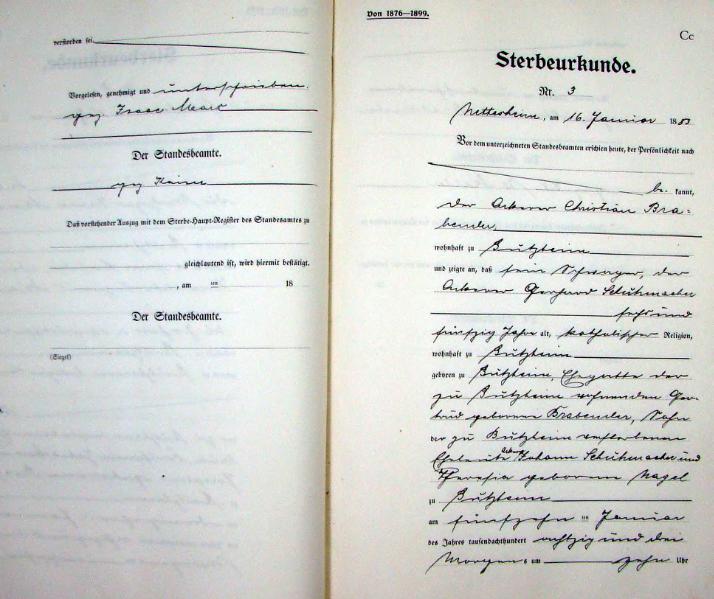 verstorben sei
Vorgelesen, genehmigt und unterschrieben.
gez. Isaac Mark
Der Standesbeamte.
gez.
Daß vorstehender Auszug mit dem Sterbe-Haupt-Register des Standesamtes zu
gleichlautend ist, wird hiermit bestätigt.
, am ten 18
Der Standesbeamte.
(Siegel)
Von 1876—1899.
Cc
Sterbeurkunde.
Nr. 3
am 16. Januar 1883
Vor dem unterzeichneten Standesbeamten erschien heute, der Persönlichkeit nach
be kannt,
der Ackerer Christian Bra-
bender,
wohnhaft zu Bützheim
und zeigte an, daß sein Schwager, der
Ackerer Gerhard Schuhmacher
sechs und
fünfzig Jahre alt, katholischer Religion,
wohnhaft zu Bützheim
geboren zu Bützheim, Ehegatte der
zu Bützheim wohnenden Ger-
trud geborenen Brabender, Sohn
der zu Bützheim verstorbenen
Eheleute Johann Schuhmacher und
Theresia geborenen Nagel
zu Bützheim
am fünfzehn ten Januar
des Jahres tausendachthundert achtzig und drei
Morgens um zehn Uhr